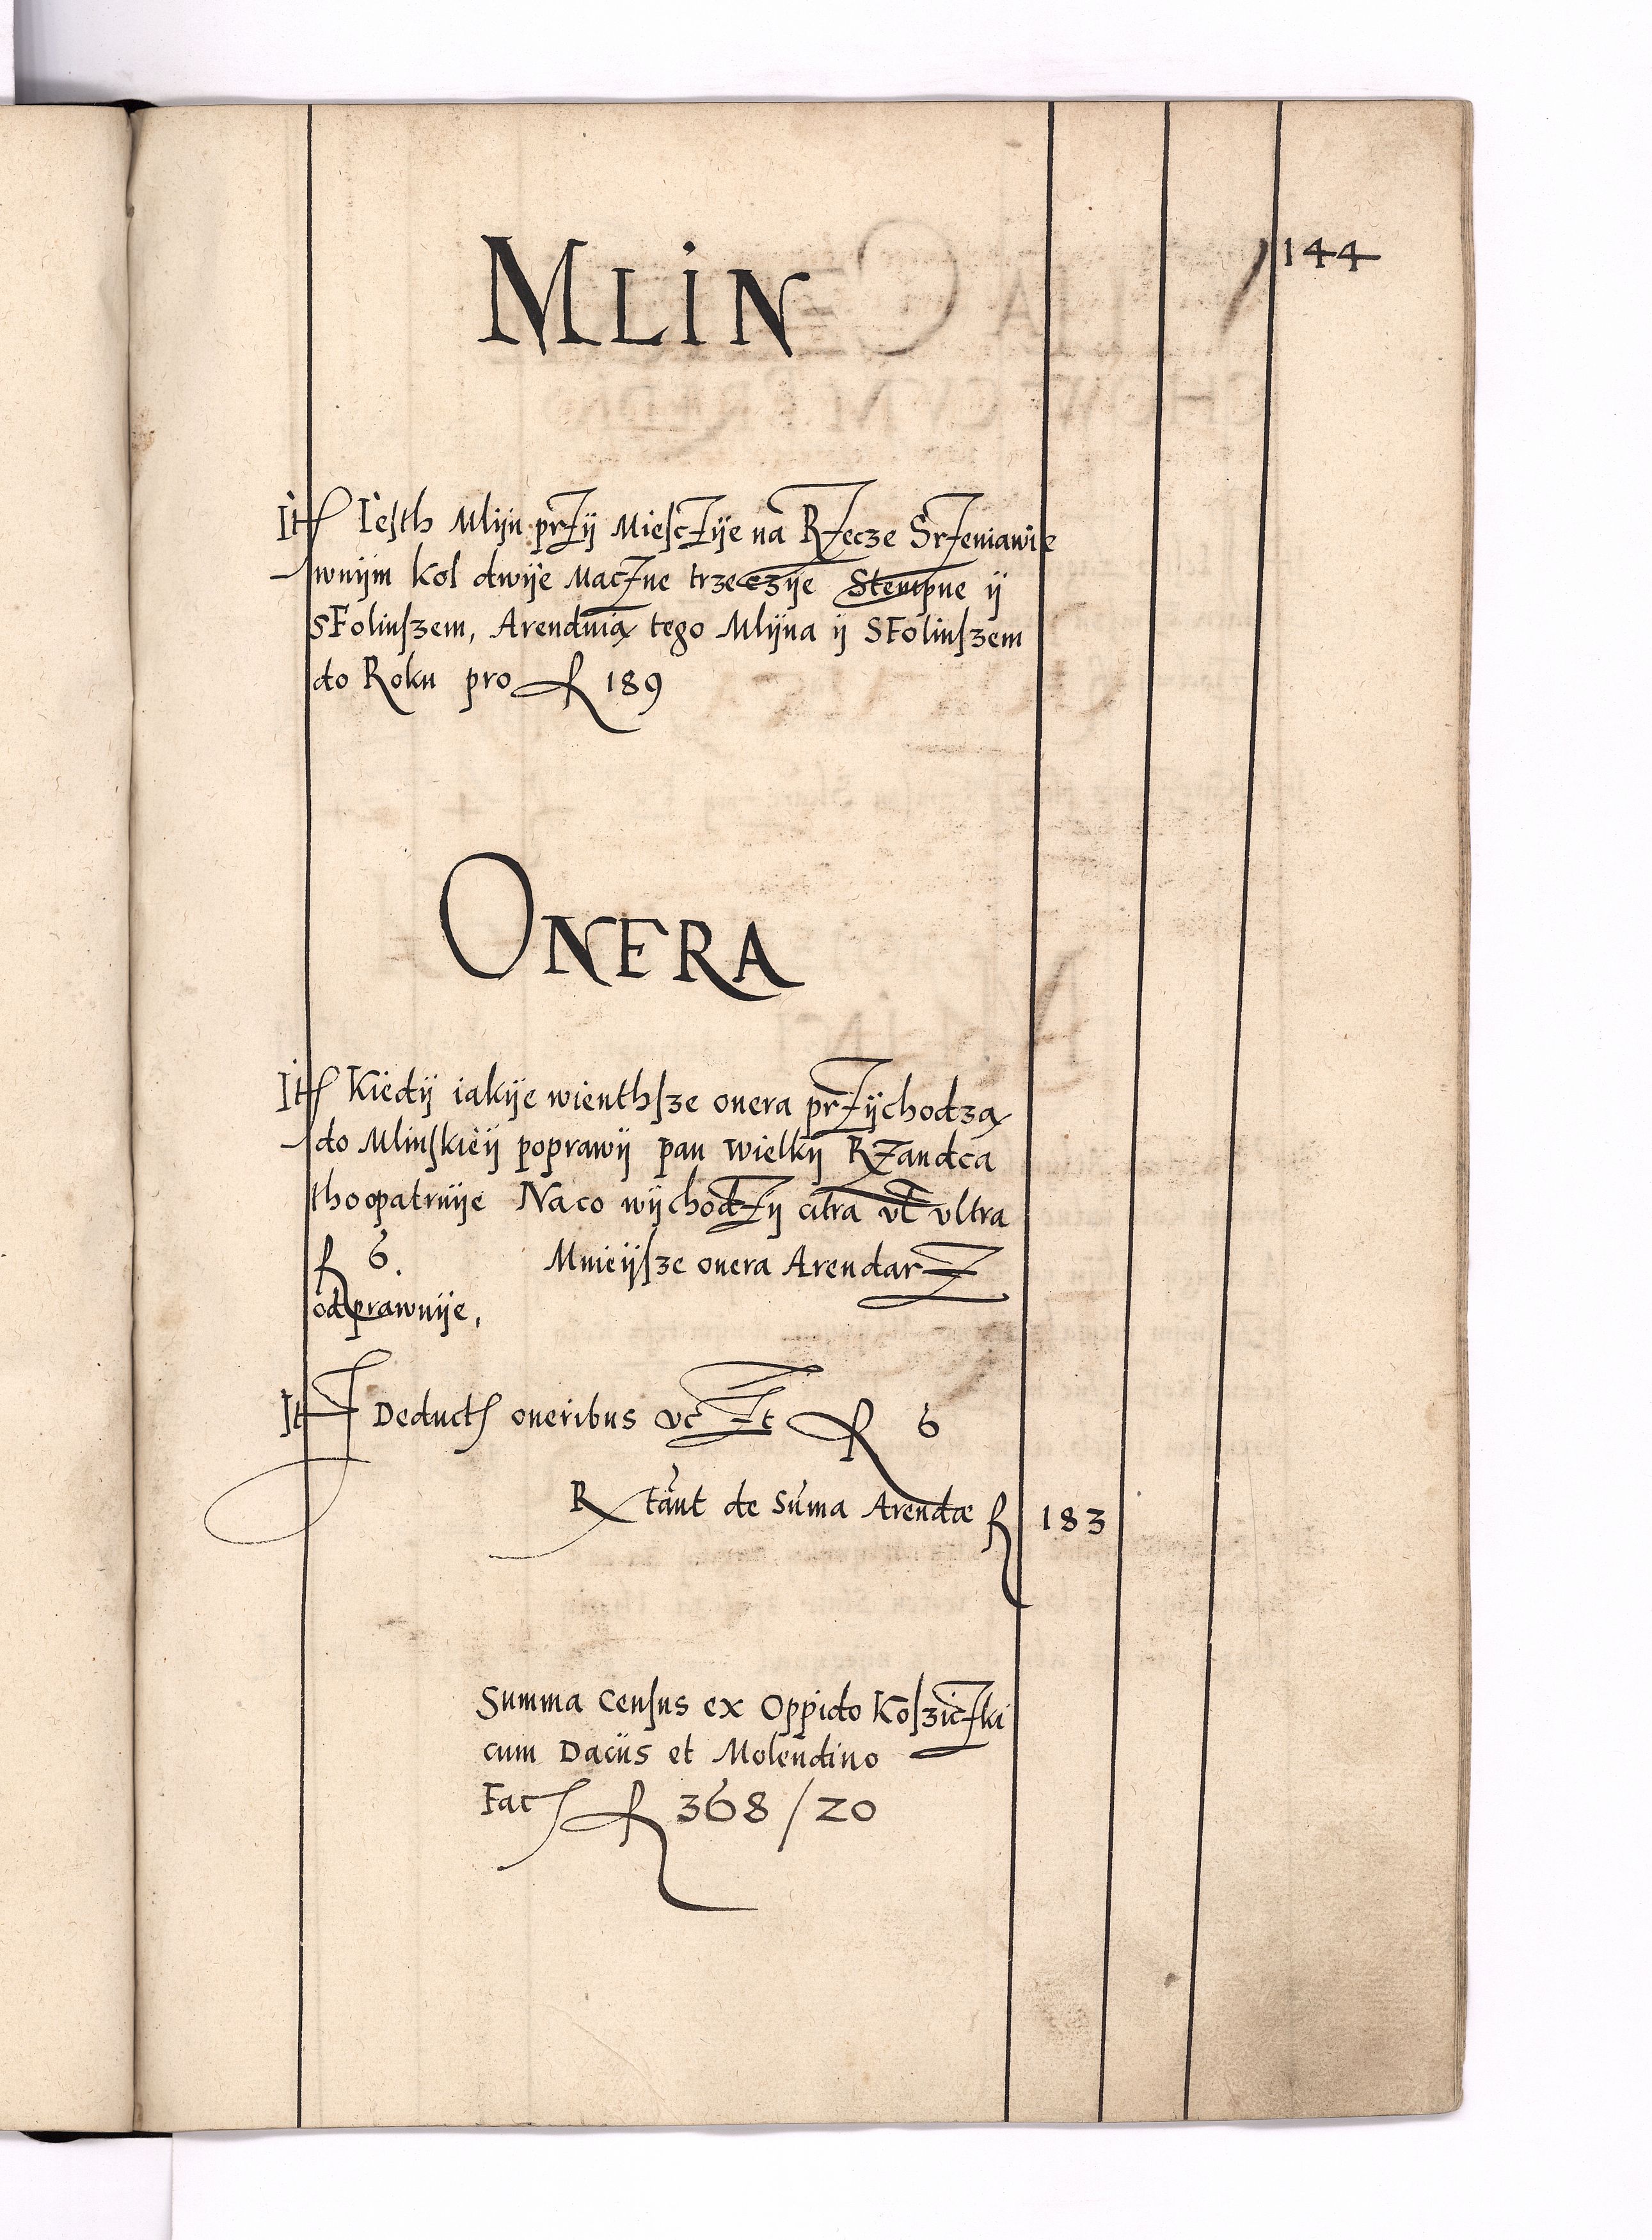 144
MLIN
Itꝭ Iesth Mlijn przij Miesczije na Rzecze Srzeniawie
wnijm kol dwije Maczne trzeczije Stempne ij
sFolinszem, Arenduią tego Mlijna ij SFolinszem
do Roku pro fl 189
ONERA
Itꝭ Kiedij iakije wienthsze onera przijchodzą
do Mlinskieij poprawij pan wielkij Rzandca
thoopatruije Naco wijchodzij citra vł vltra
fl 6. Mnieijsze onera Arendarz
odprawuije,
It Deductꝭ oneribus fl 6
Rtānt de Sūma Arendæ fl 183
Summa Census ex Oppido Kosziczki
cum Daciis et Molendino
Facꝭ fl 368/20